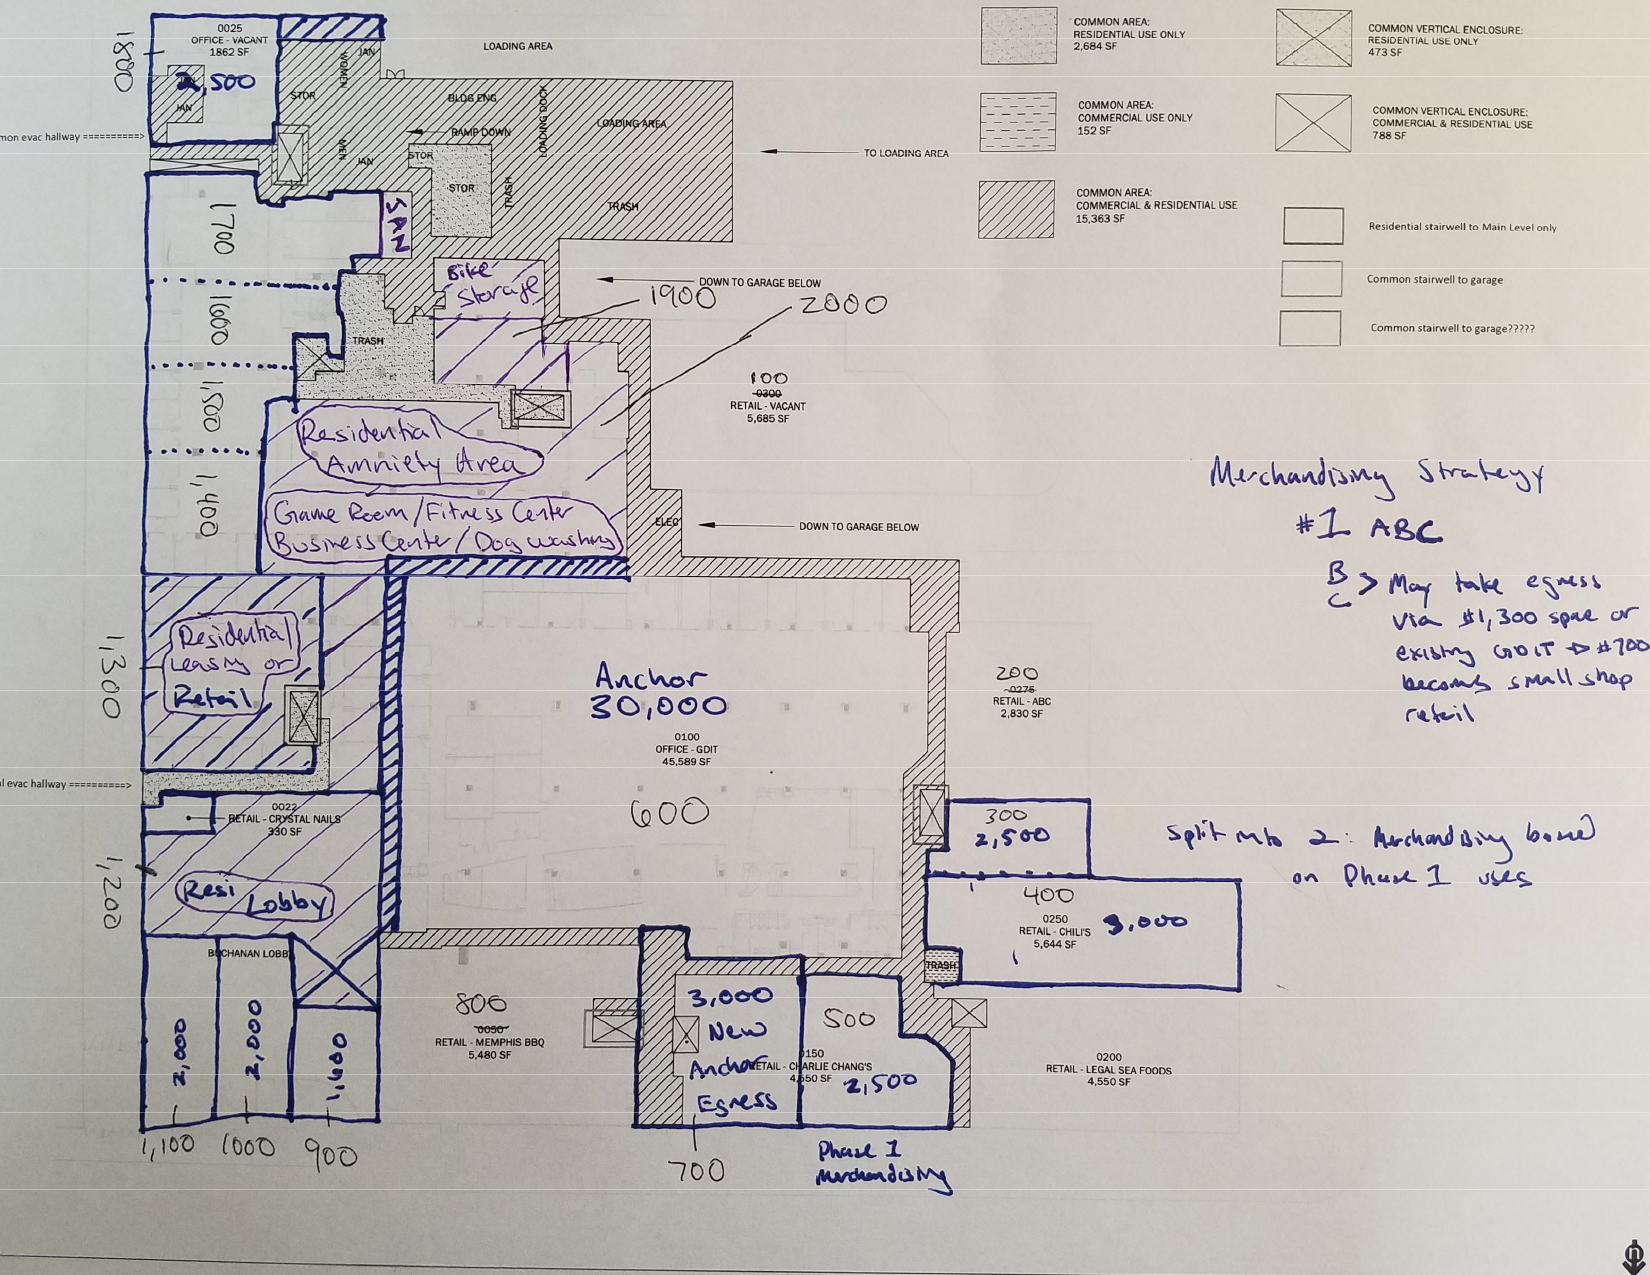 0025
OFFICE - VACANT
1862 SF
2,500
JAN
1800
mon evac hallway ===========>
WOMEN
JAN
STOR
MEN
JAN
LOADING AREA
BLDG ENG
LOADING DOCK
LOADING AREA
RAMP DOWN
STOR
STOR
TRASH
TRASH
TO LOADING AREA
COMMON AREA:
RESIDENTIAL USE ONLY
2,684 SF
COMMON AREA:
COMMERCIAL USE ONLY
152 SF
COMMON AREA:
COMMERCIAL & RESIDENTIAL USE
15,363 SF
COMMON VERTICAL ENCLOSURE:
RESIDENTIAL USE ONLY
473 SF
COMMON VERTICAL ENCLOSURE:
COMMERCIAL & RESIDENTIAL USE
788 SF
Residential stairwell to Main Level only
Common stairwell to garage
Common stairwell to garage?????
1700
SAN
Bike
Storage
DOWN TO GARAGE BELOW
1900
2000
1600
TRASH
1,500
1,400
100
0300
RETAIL - VACANT
5,685 SF
Residential
Amniety Area
Game Room/Fitness Center
Business Center/Dog washing
ELEC
DOWN TO GARAGE BELOW
Merchandising Strategy
#1 ABC
B
C > May take egress
via #1,300 space or
existing GDIT → #700
becomes small shop
retail
Residential
Leasing or
Retail
1,300
Anchor
30,000
0100
OFFICE - GDIT
45,589 SF
600
200
0275
RETAIL - ABC
2,830 SF
al evac hallway ==========>
0022
RETAIL - CRYSTAL NAILS
330 SF
300
2,500
Split into 2: Merchandising based
on Phase 1 uses
1,200
Resi Lobby
400
0250
RETAIL - CHILI'S
5,644 SF
3,000
TRASH
BUCHANAN LOBB
2,000
2,000
1,600
1,100
1000
900
800
0050
RETAIL - MEMPHIS BBQ
5,480 SF
3,000
New
Anchor
Egress
700
500
0150
RETAIL - CHARLIE CHANG'S
4,550 SF
2,500
Phase 1
Merchandising
0200
RETAIL - LEGAL SEA FOODS
4,550 SF
n